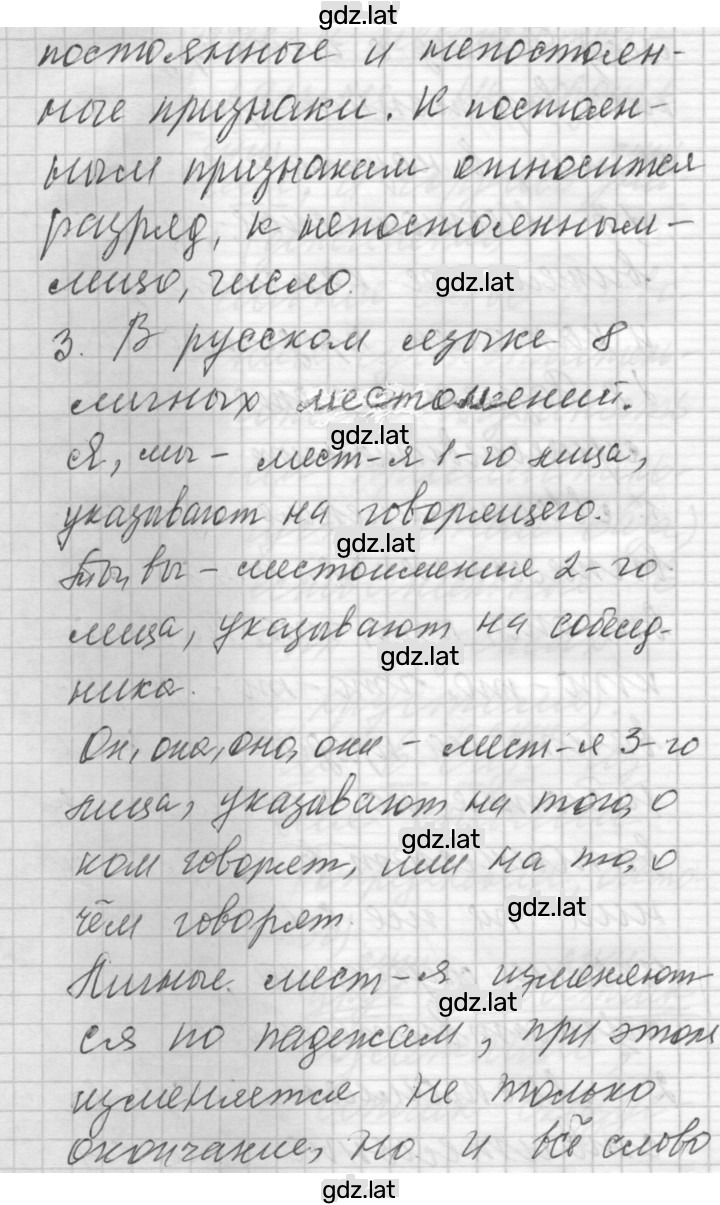 gdz.lat
постоянные и непостоян-
ные признаки. К постоян-
ным признакам относится
разряд, к непостоянным -
лицо, число.
gdz.lat
3. В русском языке 8
личных местоимений.
gdz.lat
Я, мы - мест-я 1-го лица,
указывают на говорящего.
gdz.lat
Ты, вы - местоимения 2-го
лица, указывают на собесед-
gdz.lat
ника.
Он, она, оно, они - мест-я 3-го
лица, указывают на того, о
gdz.lat
ком говорят, или на то, о
чём говорят.
gdz.lat
Личные мест-я изменяют
gdz.lat
ся по падежам, при этом
изменяется не только
окончание, но и всё слово
gdz.lat